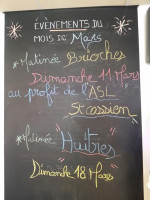 ÉVÈNEMENTS DU
MOIS DE Mars
* Matinée Brioches
Dimanche 11 Mars
au profit de l'ASL
St Cassien
* Matinée "Huîtres"
"Dimanche 18 Mars"